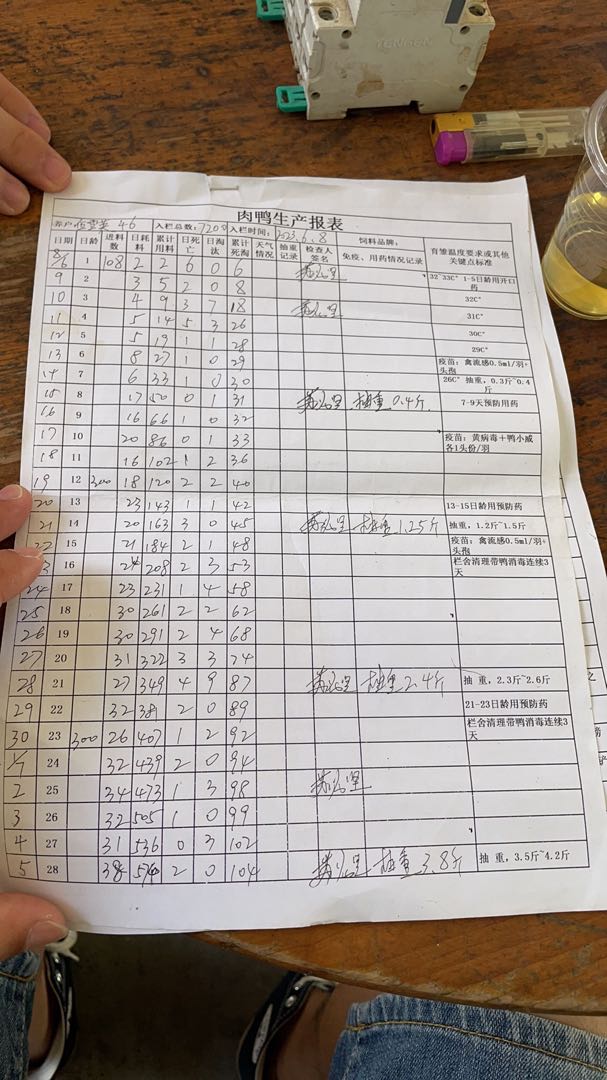 TENGEN
肉鸭生产报表
养户: 46 入栏总数: 7200 入栏时间: 2023.6.8 饲料品牌:
日期 日龄 进料数 日耗料 累计用料 日死亡 日淘汰 累计死淘 天气情况 抽重记录 检查人签名 免疫、用药情况记录 育雏温度要求或其他关键点标准
8/6 1 108 2 2 6 0 6 32~33C° 1-5日龄用开口药
9 2 3 5 2 0 8
10 3 4 9 3 7 18 32C°
11 4 5 14 5 3 26 31C°
12 5 5 19 1 1 28 30C°
13 6 8 27 1 0 29 29C°
疫苗:禽流感0.5ml/羽+头孢
14 7 6 33 1 0 30 26C° 抽重,0.3斤~0.4斤
15 8 17 50 0 1 31 抽重 0.4斤. 7-9天预防用药
16 9 16 66 1 0 32
17 10 20 86 0 1 33 疫苗:黄病毒+鸭小减各1头份/羽
18 11 16 102 1 2 36
19 12 300 18 120 2 2 40
20 13 23 143 1 1 42 13-15日龄用预防药
21 14 20 163 3 0 45 抽重 1.25斤 抽重,1.2斤~1.5斤
22 15 21 184 2 1 48 疫苗:禽流感0.5ml/羽+头孢
3 16 24 208 2 3 53 栏舍清理带鸭消毒连续3天
24 17 23 231 1 4 58
25 18 30 261 2 2 62
26 19 30 291 2 4 68
27 20 31 322 3 3 74
28 21 27 349 4 9 87 抽重 2.4斤 抽 重,2.3斤~2.6斤
29 22 32 381 2 0 89 21-23日龄用预防药
30 23 300 26 407 1 2 92 栏舍清理带鸭消毒连续3天
1/7 24 32 439 2 0 94
2 25 34 473 1 3 98
3 26 32 505 1 0 99
4 27 31 536 0 3 102
5 28 38 574 2 0 104 抽重 3.8斤 抽 重,3.5斤~4.2斤